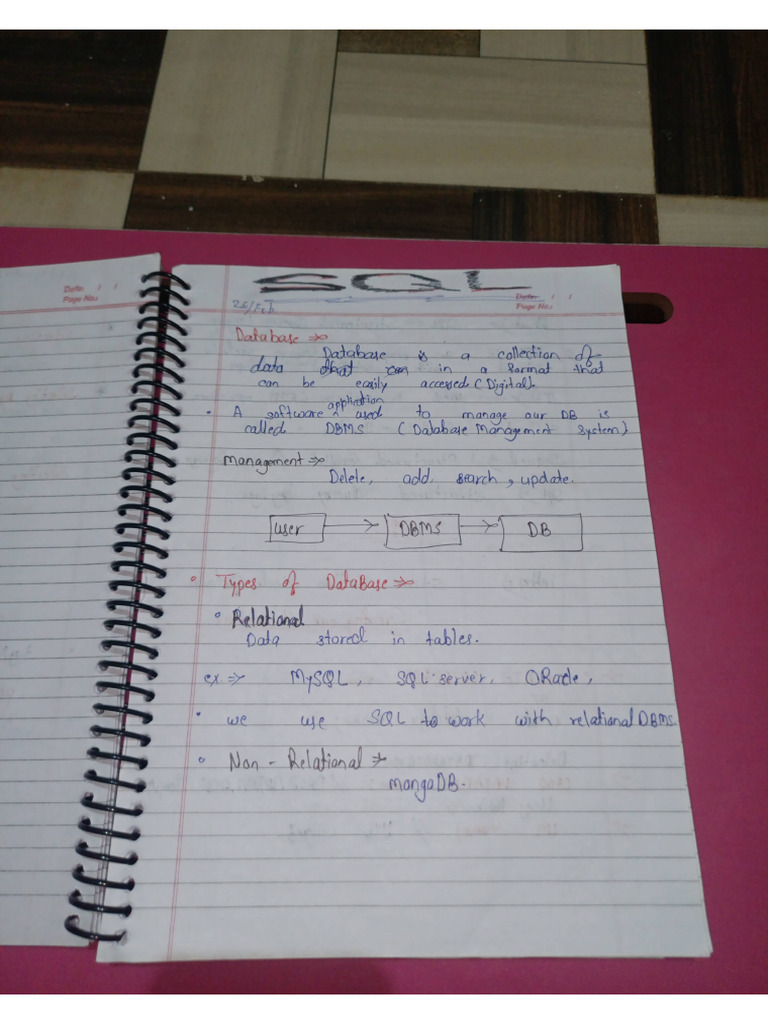 Date: / /
Page No.:
SQL
Date: / /
Page No.:
25/Feb
Database ⇒
Database is a collection of
data that in a format that
can be easily accessed (Digital).
• A software application used to manage our DB is
called DBMS (Database Management System)
Management ⇒
Delete, add, search, update.
user → DBMS → DB
• Types of DataBase ⇒
• Relational
Data stored in tables.
ex ⇒ MySQL, SQL server, ORacle,
• we use SQL to work with relational DBMS.
• Non - Relational ⇒
mangoDB.